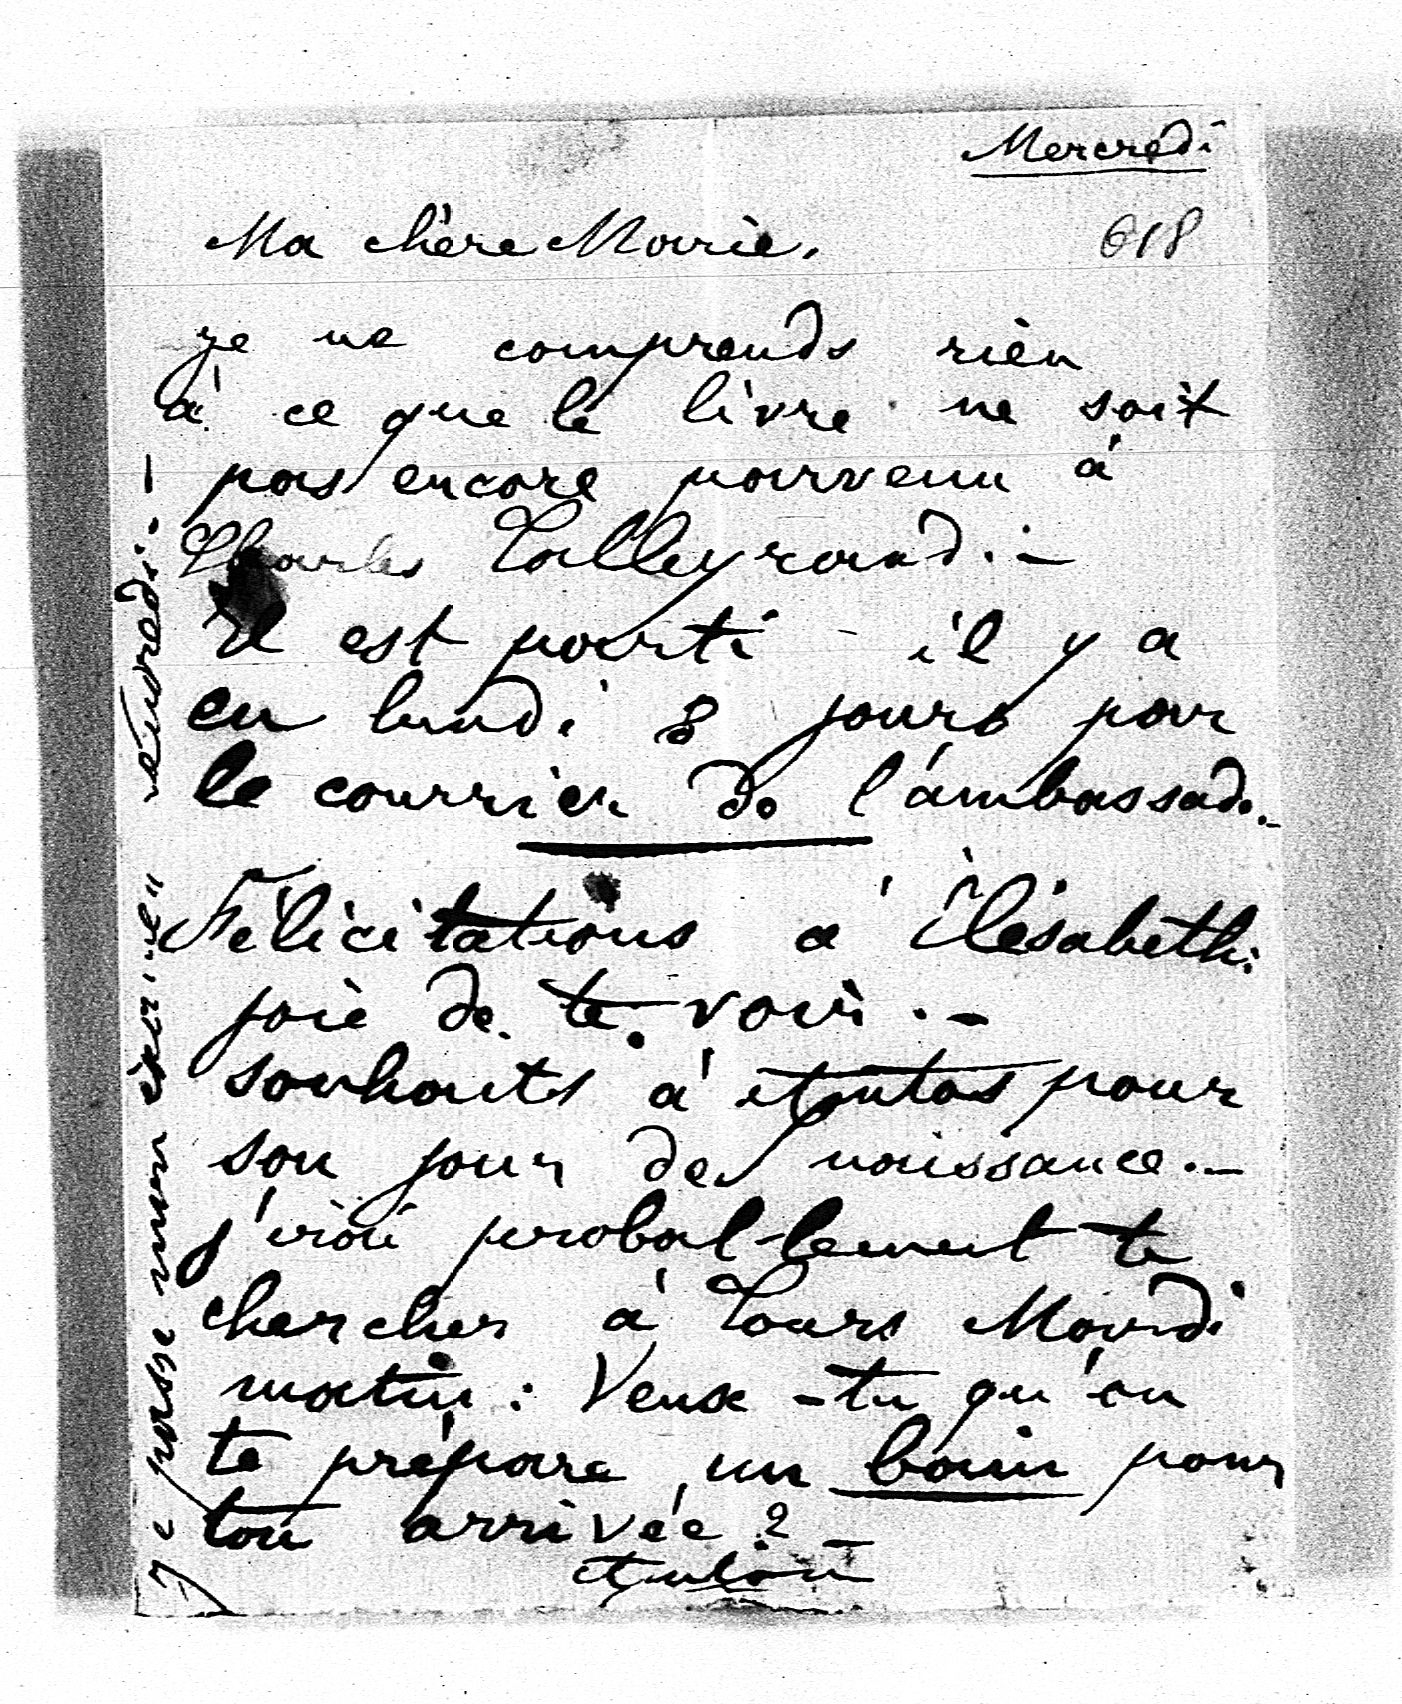 Mercredi
618
Ma chère Marie,
je ne comprends rien
à ce que le livre ne soit
pas encore parvenu à
Charles Talleyrand. —
Il est parti il y a
eu lundi 8 jours par
le courrier de l'ambassade. -
Félicitations à Élisabeth.
joie de te voir. —
souhaits à pour
son jour de naissance. —
j'irai probablement te
chercher à Tours Mardi
matin : Veux-tu qu'on
te prépare un bain pour
ton arrivée ? —
je passe mon écrire